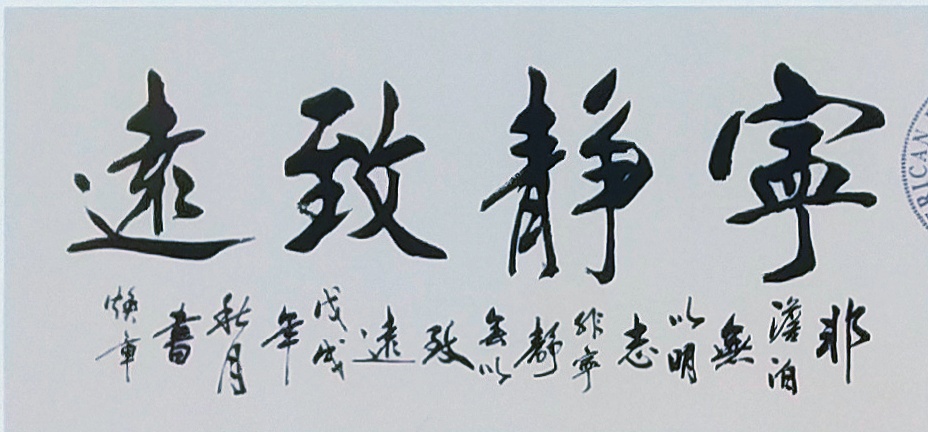 寧靜致遠
非澹泊無以明志非寧靜無以致遠戊戌年秋月書煥章
RICAN